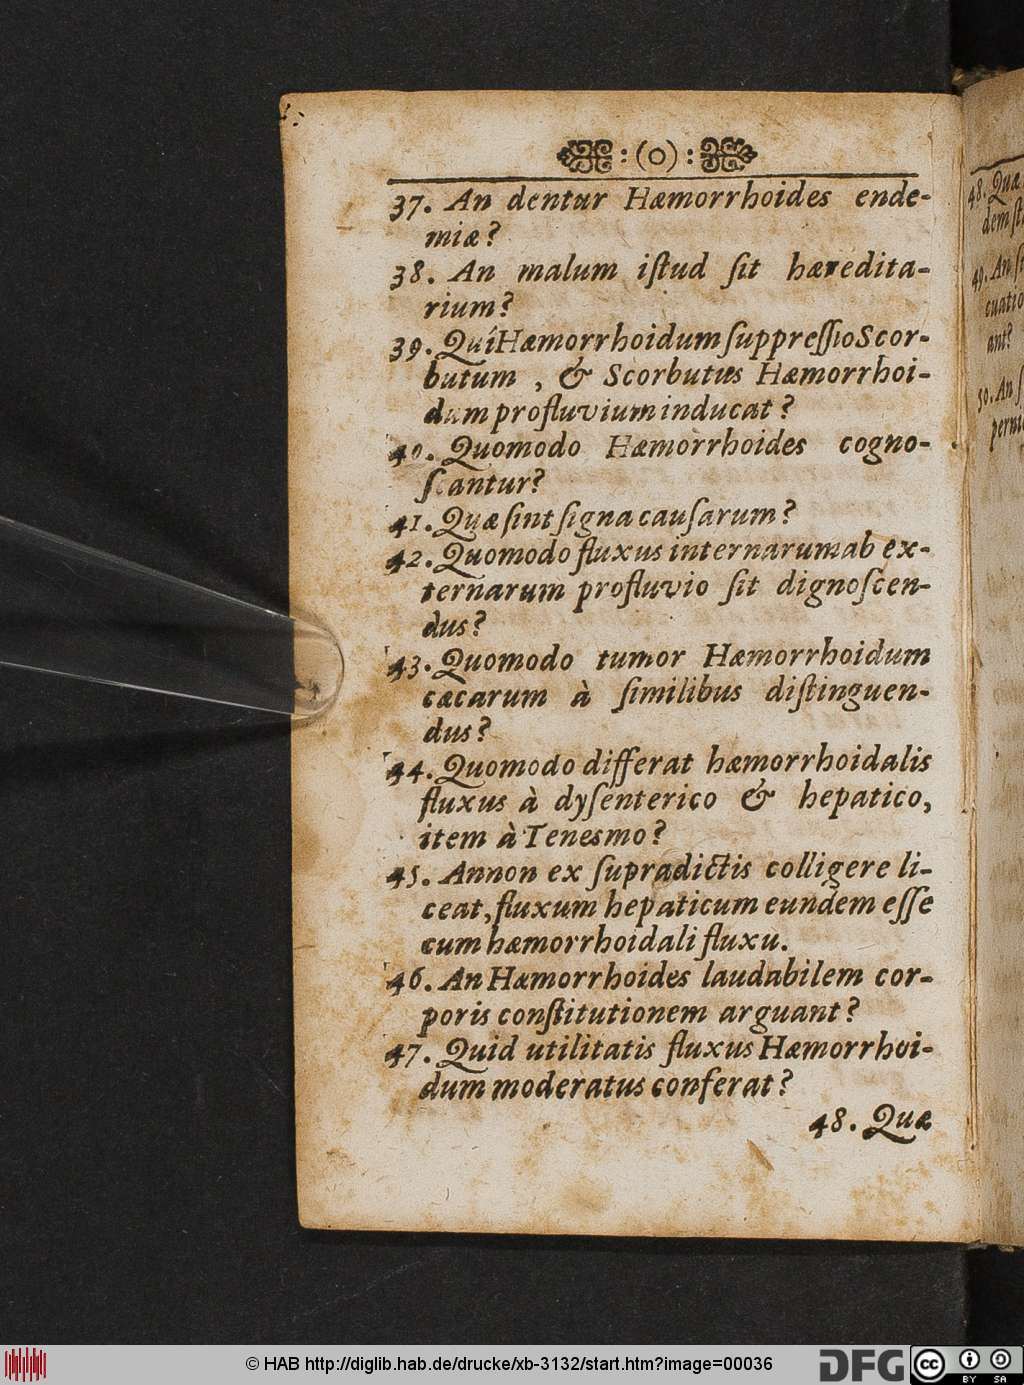 :(o):
37. An dentur Hæmorrhoides ende-
miæ?
38. An malum iſtud ſit hæredita-
rium?
39. Quí Hæmorrhoidum ſuppreſſio Scor-
butum, & Scorbutus Hæmorrhoi-
dum profluvium inducat?
40. Quomodo Hæmorrhoides cogno-
ſcantur?
41. Quæ ſint ſigna cauſarum?
42. Quomodo fluxus internarum ab ex-
ternarum profluvio ſit dignoſcen-
dus?
43. Quomodo tumor Hæmorrhoidum
cæcarum à ſimilibus diſtinguen-
dus?
44. Quomodo differat hæmorrhoidalis
fluxus à dyſenterico & hepatico,
item à Tenesmo?
45. Annon ex ſupradictis colligere li-
ceat, fluxum hepaticum eundem eſſe
cum hæmorrhoidali fluxu.
46. An Hæmorrhoides laudabilem cor-
poris conſtitutionem arguant?
47. Quid utilitatis fluxus Hæmorrhoi-
dum moderatus conferat?
48. Quæ
48. Quæ
dem
49. An
cuatio
ant?
50. An
© HAB http://diglib.hab.de/drucke/xb-3132/start.htm?image=00036
DFG
cc
BY SA